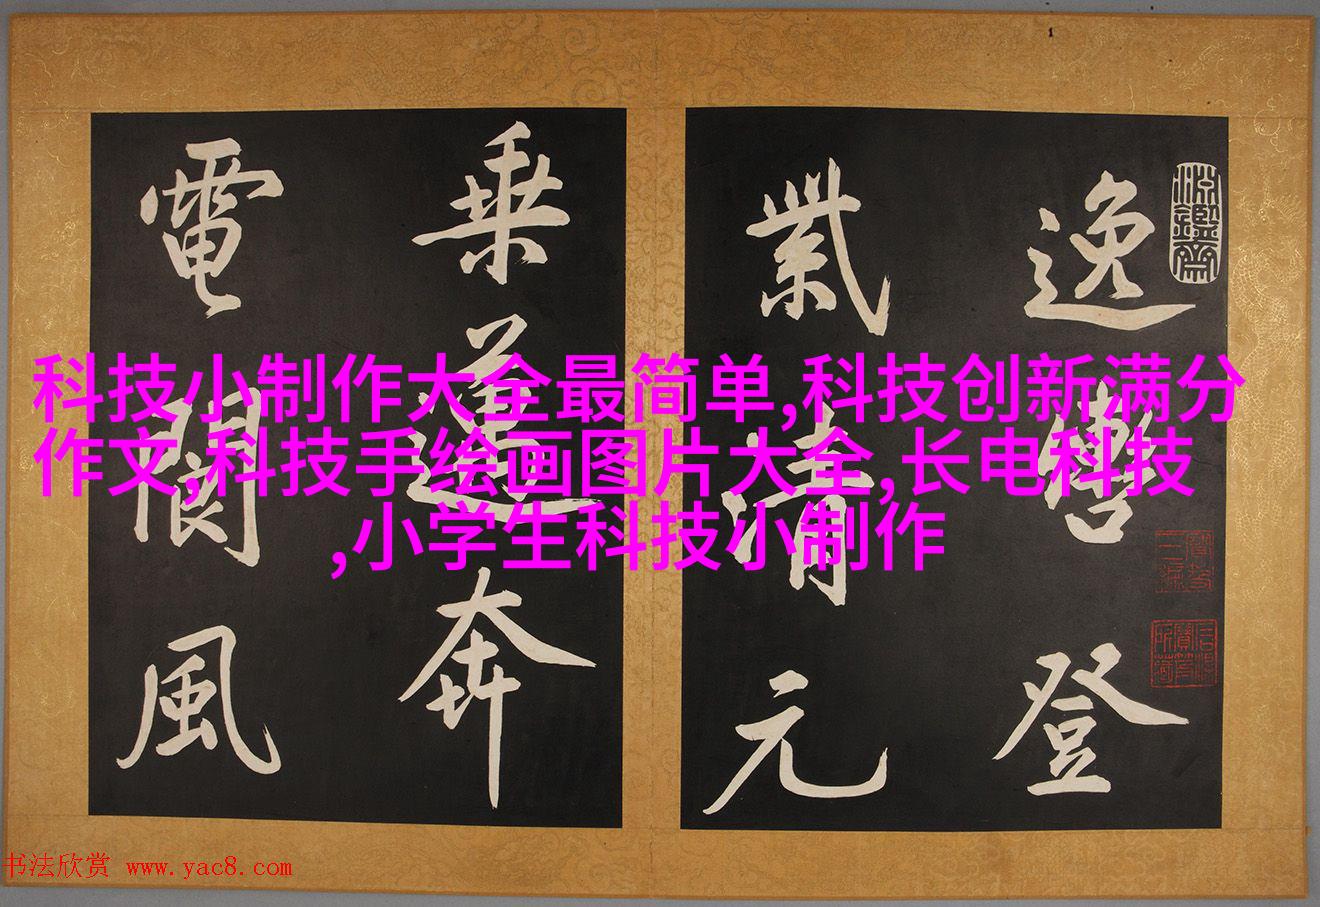 逸轡登
紫清元
乘邁奔
電閬風
科技小制作大全最简单,科技创新满分
作文,科技手绘画图片大全,长电科技
,小学生科技小制作
书法欣赏 www.yac8.com